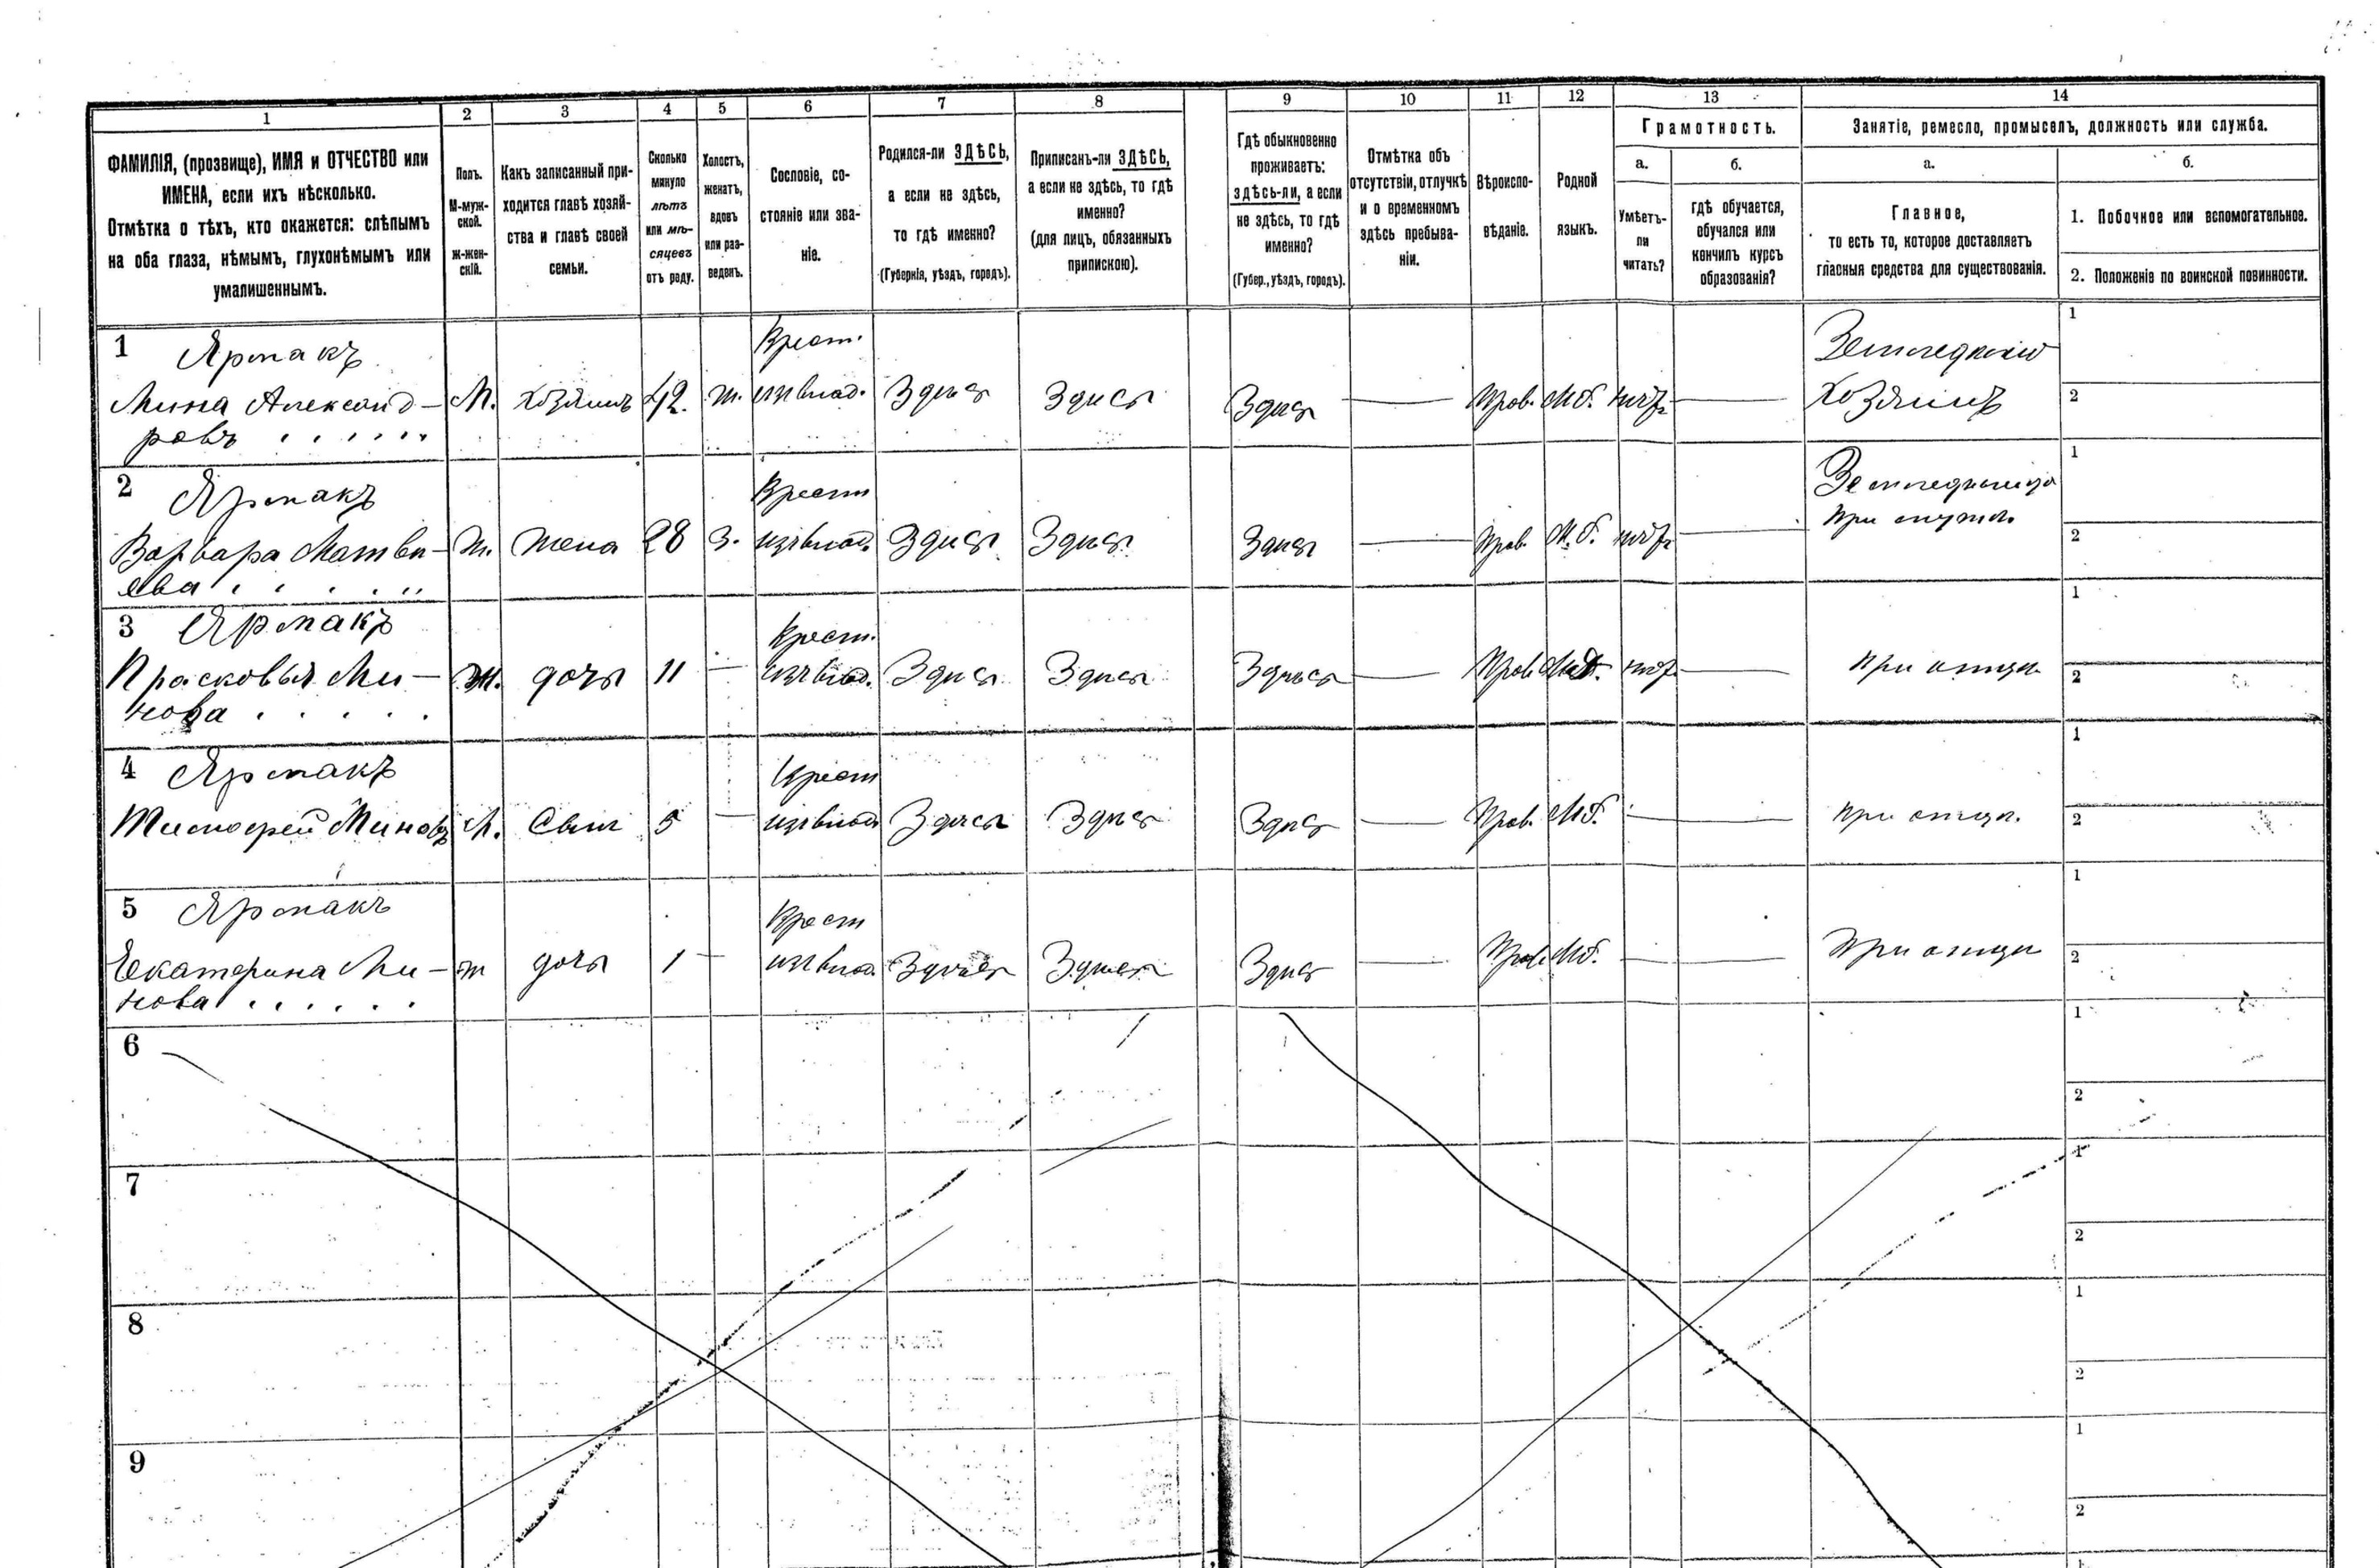 1 2 3 4 5 6 7 8 9 10 11 12 13 14
ФАМИЛІЯ, (прозвище), ИМЯ и ОТЧЕСТВО или
ИМЕНА, если ихъ нѣсколько.
Отмѣтка о тѣхъ, кто окажется: слѣпымъ
на оба глаза, нѣмымъ, глухонѣмымъ или
умалишеннымъ.
Полъ.
М-муж-
ской.
Ж-жен-
скій.
Какъ записанный при-
ходится главѣ хозяй-
ства и главѣ своей
семьи.
Сколько
минуло
лѣтъ
или мѣ-
сяцевъ
отъ роду.
Холостъ,
женатъ,
вдовъ
или раз-
веденъ.
Сословіе, со-
стояніе или зва-
ніе.
Родился-ли ЗДѢСЬ,
а если не здѣсь,
то гдѣ именно?
(Губернія, уѣздъ, городъ).
Приписанъ-ли ЗДѢСЬ,
а если не здѣсь, то гдѣ
именно?
(для лицъ, обязанныхъ
припискою).
Гдѣ обыкновенно
проживаетъ:
здѣсь-ли, а если
не здѣсь, то гдѣ
именно?
(Губер., уѣздъ, городъ).
Отмѣтка объ
отсутствіи, отлучкѣ
и о временномъ
здѣсь пребыва-
ніи.
Вѣроиспо-
вѣданіе.
Родной
языкъ.
Грамотность.
а.
Умѣетъ-
ли
читать?
б.
гдѣ обучается,
обучался или
кончилъ курсъ
образованія?
Занятіе, ремесло, промыселъ, должность или служба.
а.
Главное,
то есть то, которое доставляетъ
главныя средства для существованія.
б.
1. Побочное или вспомогательное.
2. Положеніе по воинской повинности.
1 Ярмакъ Крест. 1
Мина Александ- М. хозяинъ 42. ж. изъ влад. Здѣсь Здѣсь Здѣсь — Прав. Мб. нѣтъ — Хозяинъ 2
ровъ
2 Ярмакъ Крест 1
Варвара Матвѣ- ж. жена 28 З. изъ влад. Здѣсь Здѣсь Здѣсь — Прав. М.б. нѣтъ — при мужѣ 2
ева
3 Ярмакъ Крест. 1
Прасковья Ми- ж. дочь 11 — изъ влад. Здѣсь Здѣсь Здѣсь — Прав. Мб. нѣтъ — при отцѣ 2
нова
4 Ярмакъ Крест 1
Тимофей Миновъ М. Сынъ 5 — изъ влад Здѣсь Здѣсь Здѣсь — Прав. Мб. — — при отцѣ. 2
5 Ярмакъ Крест 1
Екатерина Ми- ж дочь 1 — изъ влад. Здѣсь Здѣсь Здѣсь — Прав. Мб. — — при отцѣ 2
нова
6 1
2
7 1
2
8 1
2
9 1
2